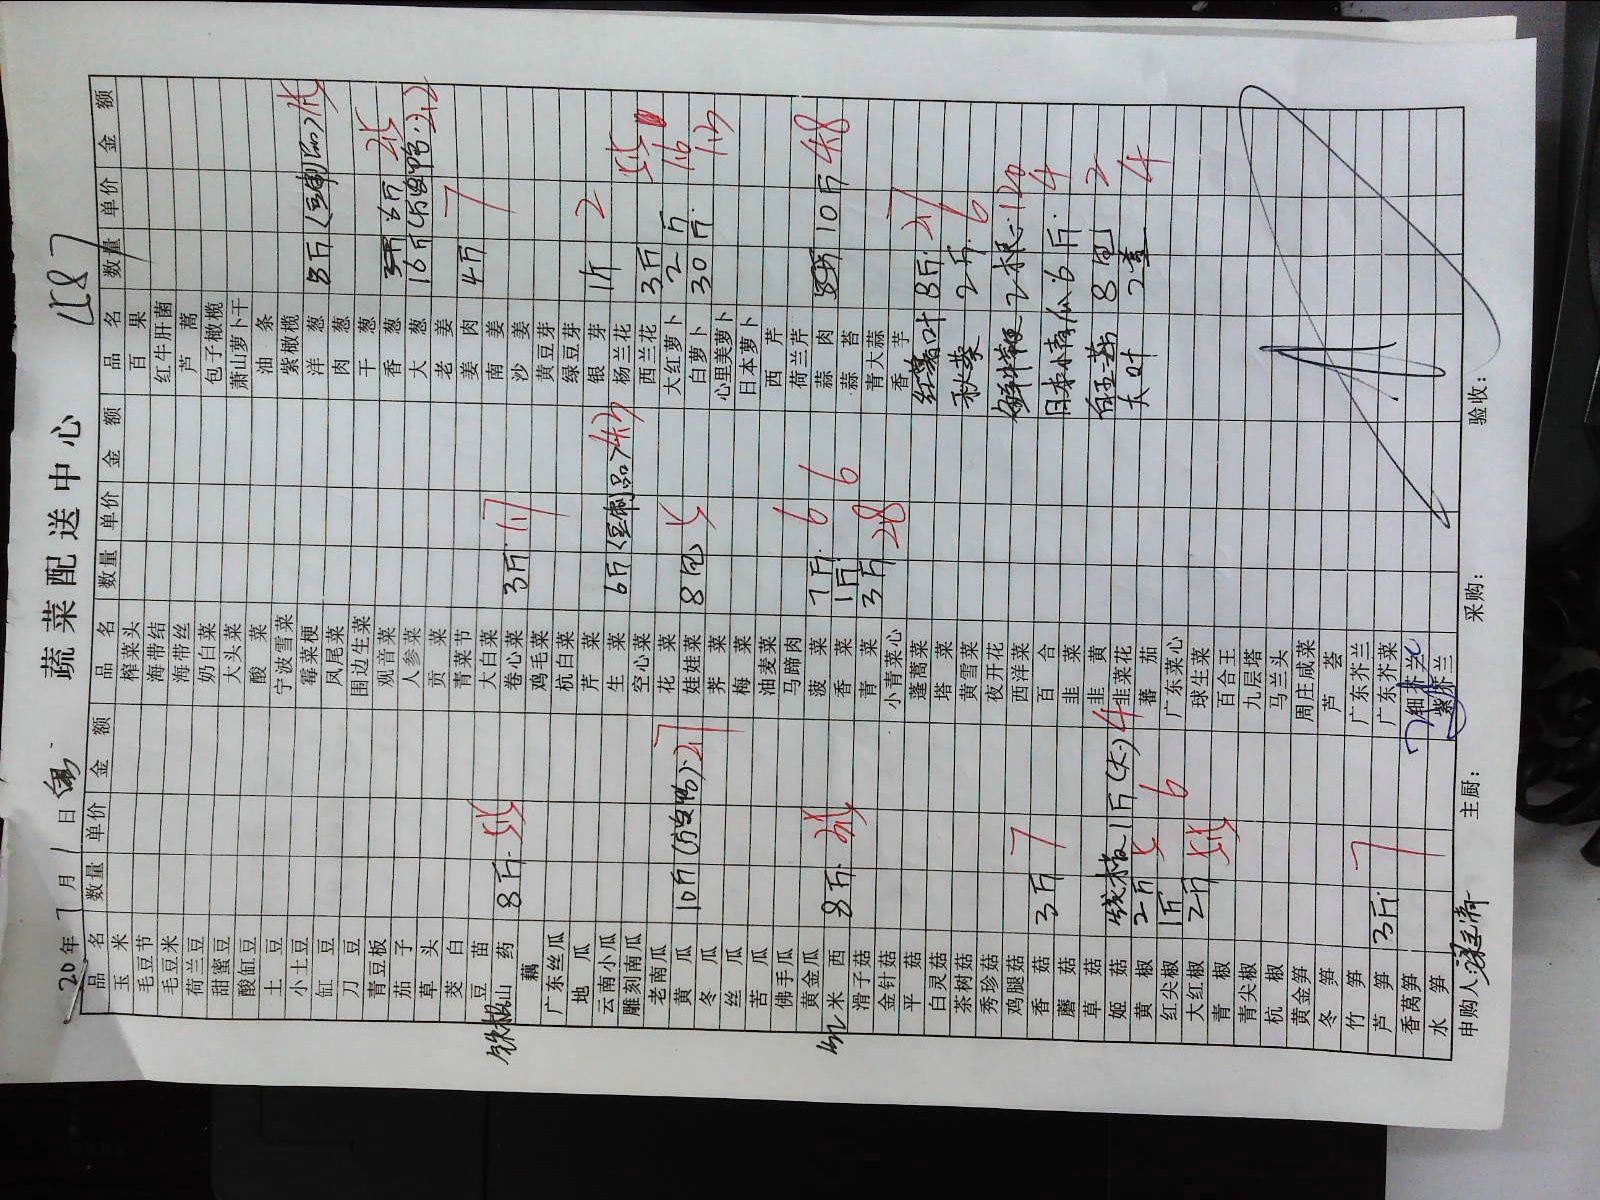 蔬菜配送中心
20 年 7 月 1 日
品名 数量 单价 金额
玉米
毛豆节
毛豆米
荷兰豆
甜蜜豆
酸缸豆
土豆
小土豆
缸豆
刀豆
青豆板
茄子
草头
茭白
豆苗
铁棍山药 8斤
藕
广东丝瓜
地瓜
云南小瓜
雕刻南瓜
老南瓜
黄瓜 10斤
冬瓜
丝瓜
苦瓜
佛手瓜
黄金瓜
小米西 8斤
滑子菇
金针菇
平菇
白灵菇
茶树菇
秀珍菇
鸡腿菇
香菇 3斤 7
蘑菇
草菇
姬菇 线椒1斤(大) 4
黄椒 2斤 5
红尖椒 1斤 6
大红椒 2斤
青椒
青尖椒
杭椒
黄金笋
冬笋
竹笋
芦笋 3斤 7
香莴笋
水笋
品名 数量 单价 金额
榨菜头
海带结
海带丝
奶白菜
大头菜
酸菜
宁波雪菜
霉菜梗
凤尾菜
围边生菜
观音菜
人参菜
贡菜
青菜节
大白菜
卷心菜 3斤
鸡毛菜
杭白菜
芹菜
生菜 6斤
空心菜
花菜
娃娃菜 8包 5
荠菜
梅菜
油麦菜
马蹄肉
菠菜 7斤 6
香菜 1斤 6
青菜 3斤 28
小青菜心
蓬蒿菜
塔菜
黄雪菜
夜开花
西洋菜
百合
韭菜
韭黄
韭菜花
蕃茄
广东菜心
球生菜
百合王
九层塔
马兰头
周庄咸菜
芦荟
广东芥兰
广东芥菜
细芥兰
紫芥兰
品名 数量 单价 金额
百果
红牛肝菌
芦蒿
包子橄榄
萧山萝卜干
油条
紫橄榄
洋葱 8斤
肉葱
干葱
香葱 6斤
大葱 16斤
老姜
姜肉 4斤 7
南姜
沙姜
黄豆芽
绿豆芽
银芽 1斤 2
杨兰花
西兰花 3斤
大红萝卜 2斤
白萝卜 30斤
心里美萝卜
日本萝卜
西芹
荷兰芹
蒜肉 10斤 48
蒜苔
青大蒜
香芋
红薯叶 8斤
秋葵 2斤 6
鲜牛鞭 2根 120
日本南瓜 6斤 4
白玉菇 8包 2
大叶 2盒 4
申购人: 主厨: 采购: 验收: